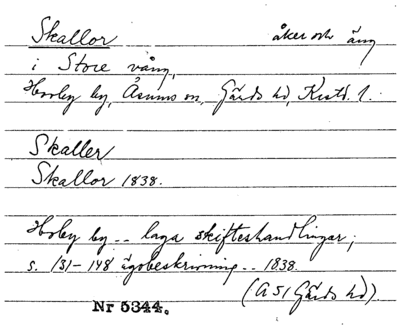 Skallor åker och äng
i Store vång,
Horby by, Åsums sn, Gärds hd, Krstd. l.
Skaller
Skallor 1838.
Horby by -- laga skifteshandlingar;
s. 131-148 ägobeskrivning -- 1838.
(A 51 Gärds hd).
Nr 5344.